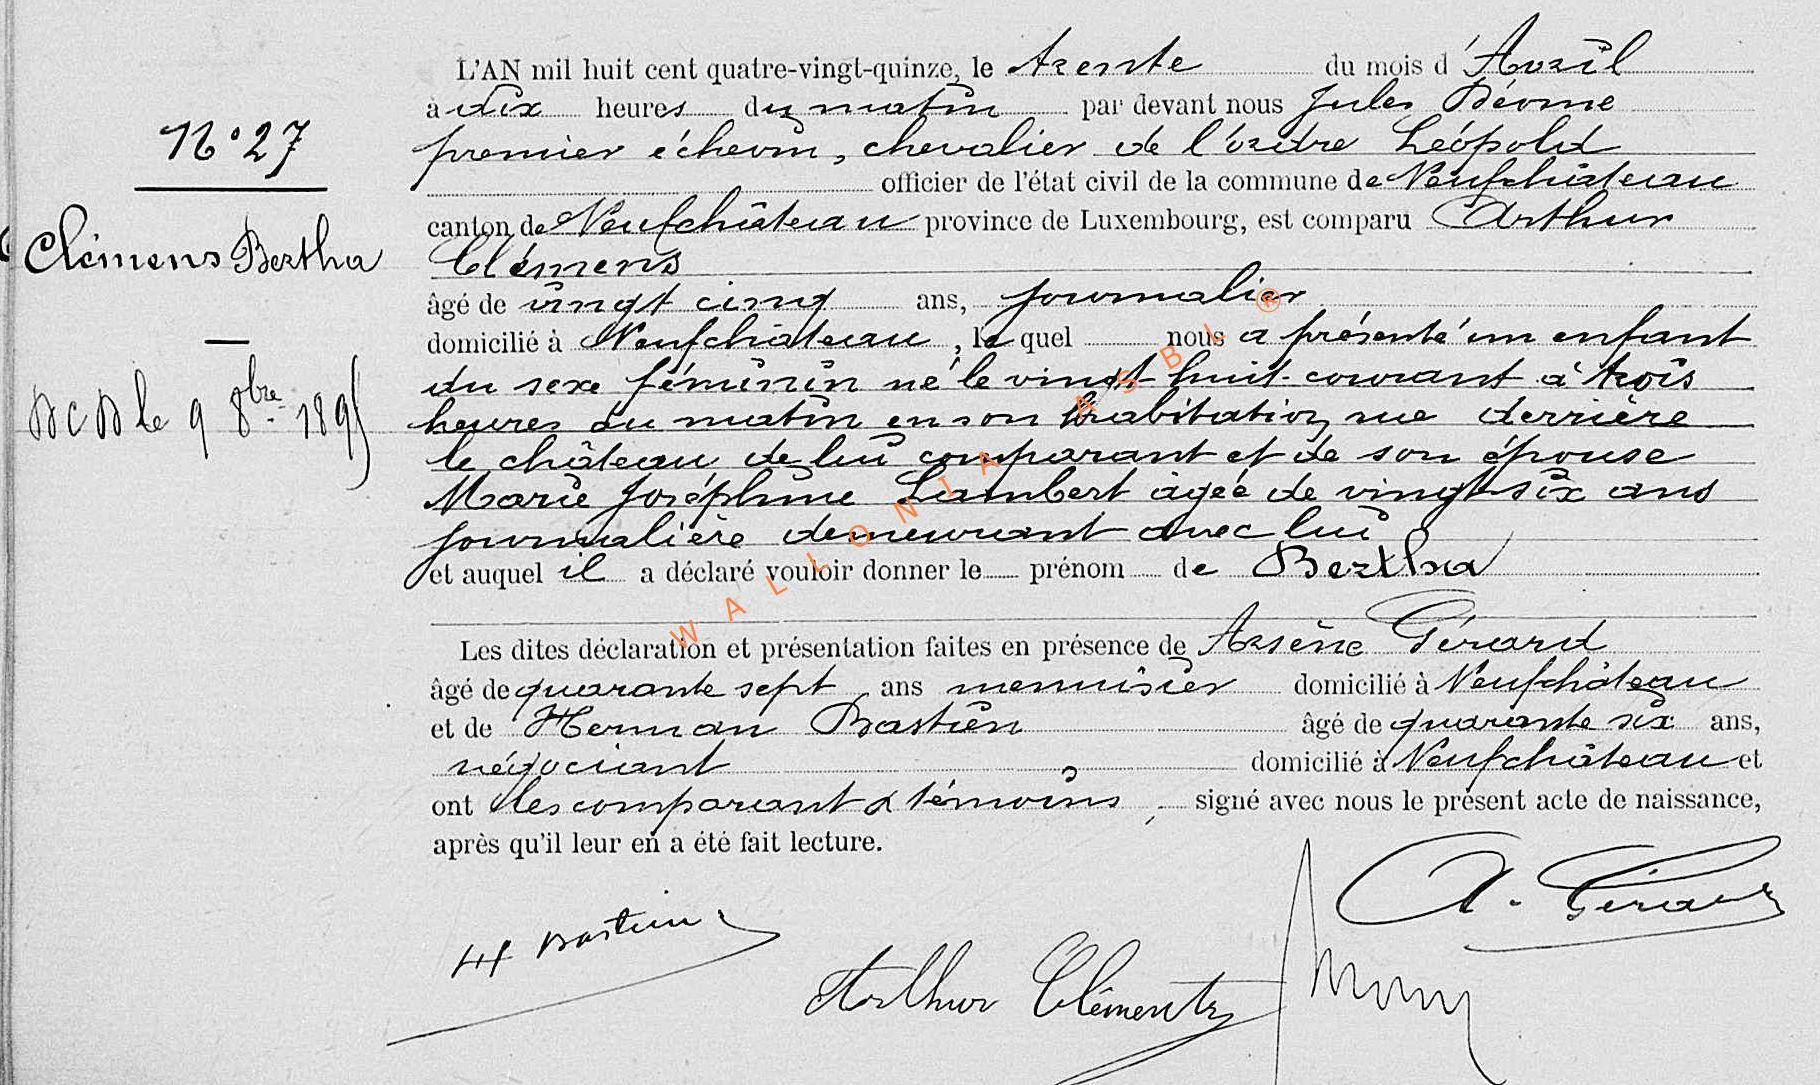 N° 27
Clémens Bertha
DCD le 9 8bre 1895
L'AN mil huit cent quatre-vingt-quinze, le trente du mois d'Avril
à dix heures du matin par devant nous Jules Déome
premier échevin, chevalier de l'ordre Léopold
officier de l'état civil de la commune de Neufchâteau
canton de Neufchâteau province de Luxembourg, est comparu Arthur
Clémens
âgé de vingt cinq ans, journalier
domicilié à Neufchâteau, le quel nous a présenté un enfant
du sexe féminin né le vingt huit courant à trois
heures du matin en son habitation, rue derrière
le château de lui comparant et de son épouse
Marie Joséphine Lambert âgée de vingt six ans
journalière demeurant avec lui
et auquel il a déclaré vouloir donner le prénom de Bertha
Les dites déclaration et présentation faites en présence de Arsène Gérard
âgé de quarante sept ans menuisier domicilié à Neufchâteau
et de Herman Bastien âgé de quarante six ans,
négociant domicilié à Neufchâteau et
ont les comparant & témoins, signé avec nous le présent acte de naissance,
après qu'il leur en a été fait lecture.
A. Gérard
H Bastien
Arthur Clémentz
WALLONIA ASBL ®